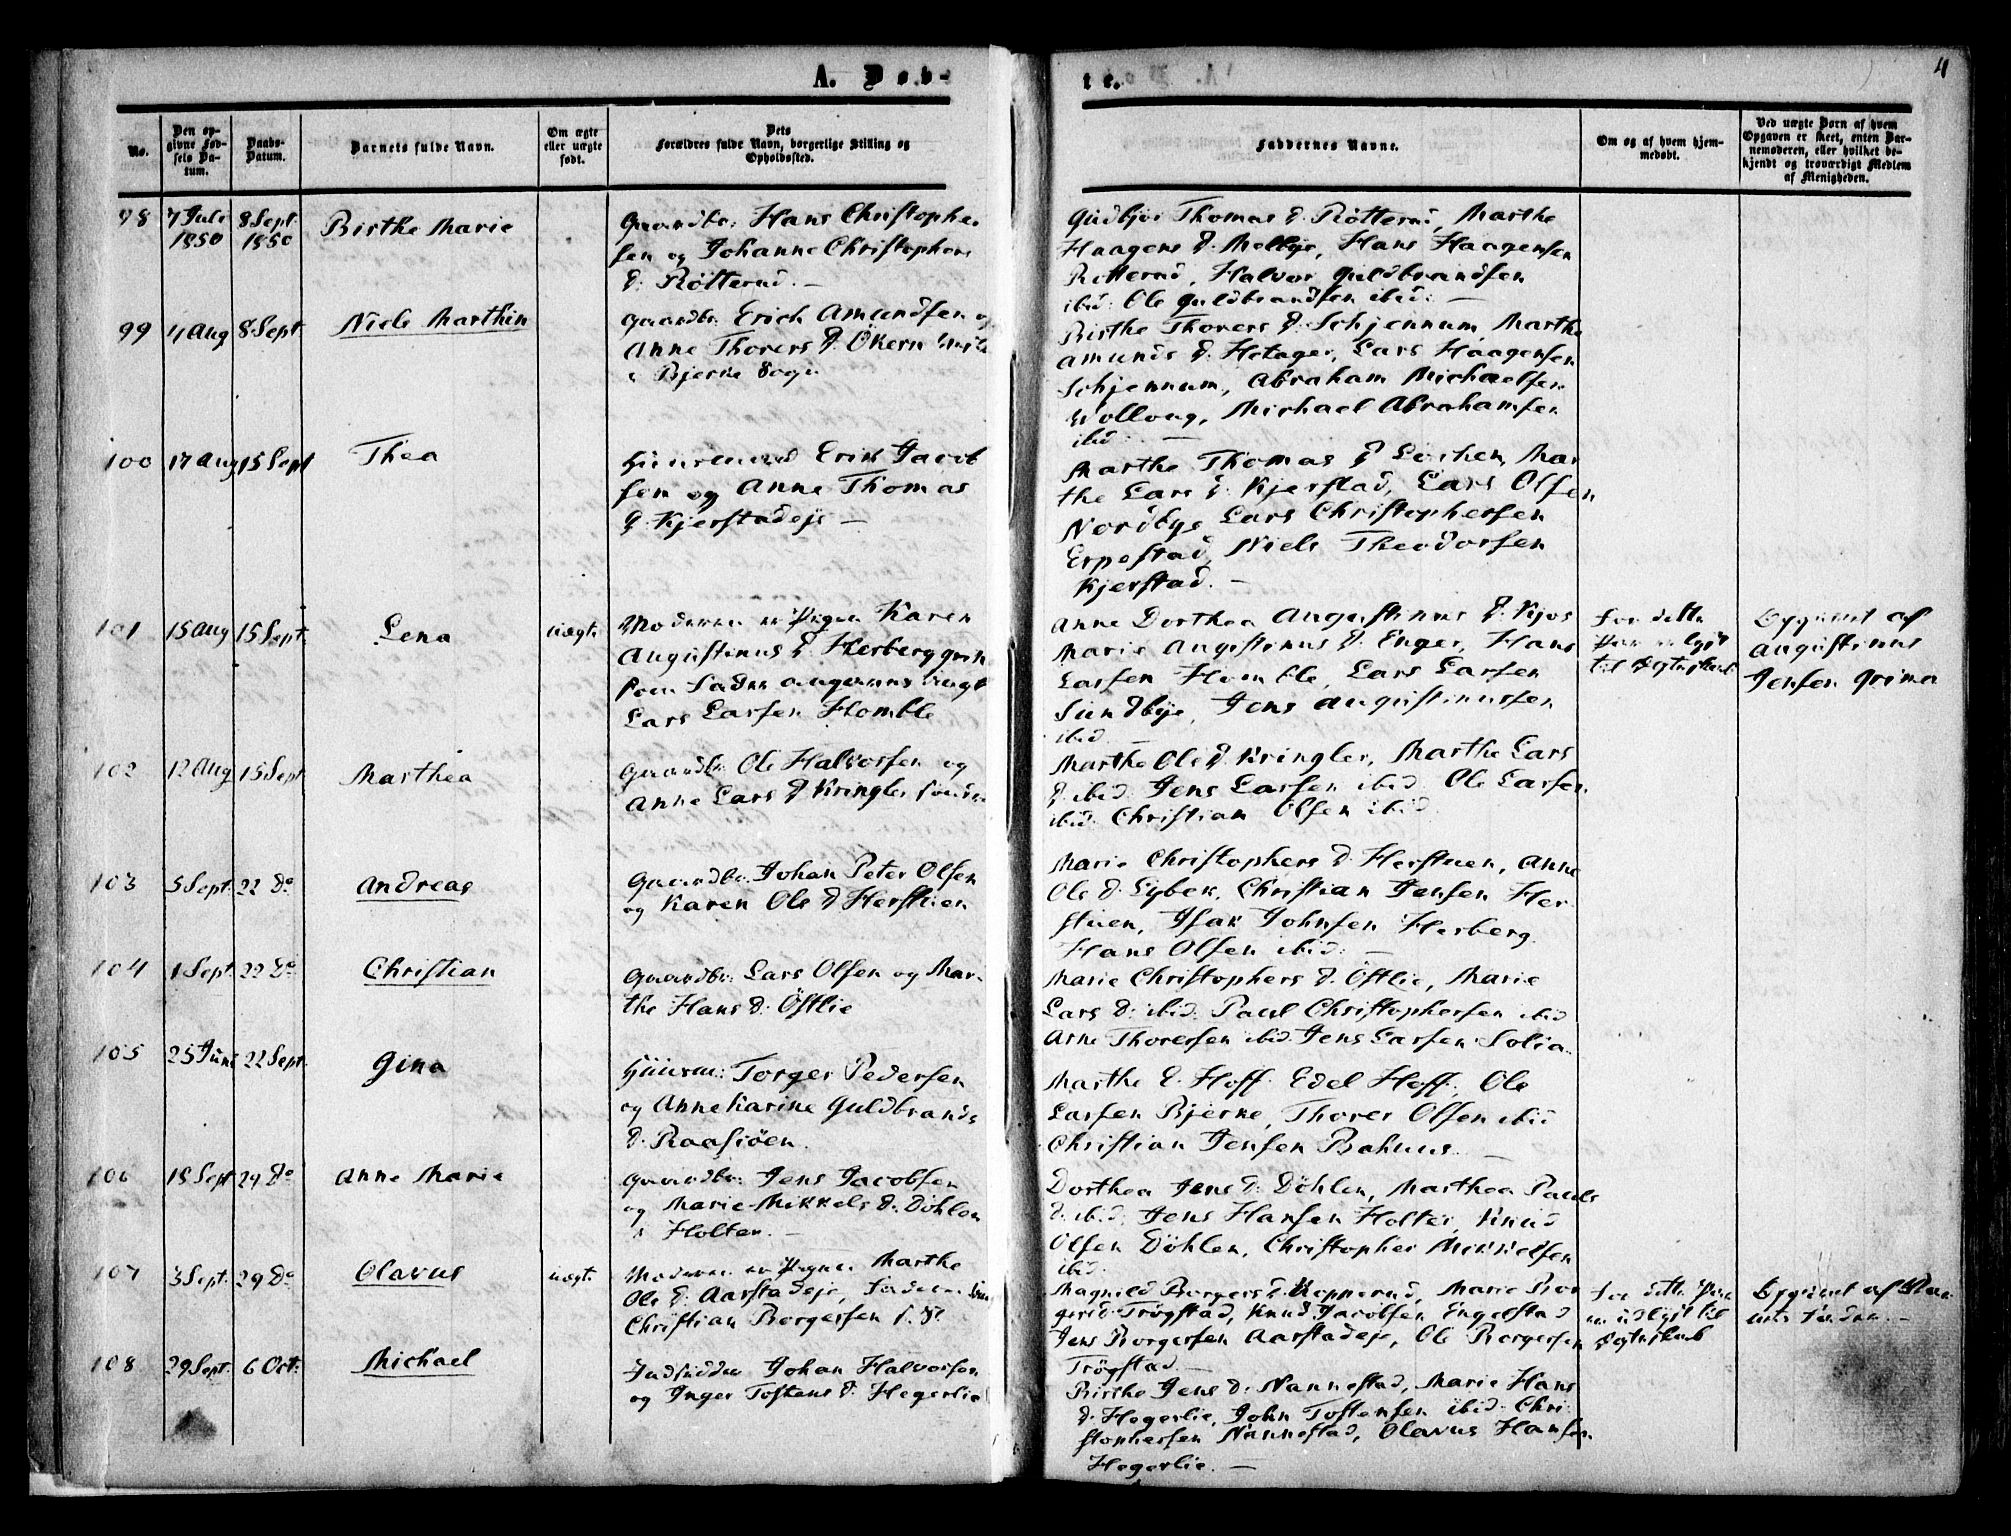 A. Døb-
te.
4
No.
Den op-
givne Fød-
sels Da-
tum.
Daabs-
Datum.
Barnets fulde Navn.
Om ægte
eller uægte
født.
Dets
Forældres fulde Navn, borgerlige Stilling og
Opholdssted.
Faddernes Navne.
Om og af hvem hjem-
medøbt.
Ved uægte Børn af hvem
Opgaven er skeet, enten Bar-
nemoderen, eller hvilket be-
kjendt og troværdigt Medlem
af Menigheden.
98
7 Juli
1850
8 Sept.
1850
Birthe Marie
Gaardbr: Hans Christophe
sen og Johanne Christophers
D: Rötterud. —
Gudbjør Thomas D. Rötterud, Marthe
Haagens D. Melbye, Hans Haagensen
Rotterud, Halvor Guldbrandsen
ibid: Ole Guldbrandsen ibid: —
99
4 Aug
8 Sept.
Niels Marthin
Gaardbr. Erich Amundsen og
Anne Thorers D. Ökern
i Bjerke Sogn
Birthe Thorers D. Schjennum, Marthe
Amunds D. Hotager, Lars Haagensen
Schjennum, Abraham Michaelsen
Wolloug, Michael Abrahamsen
ibid: —
100
17 Aug
15 Sept
Thea
Huusmand Erik Jacob
sen og Anne Thomas
D. Kjerstadeje —
Marthe Thomas D Lörchen, Mar
the Lars D. Kjerstad, Lars Olsen
Nordbye Lars Christophersen
Erpestad, Niels Theodorsen
Kjerstad. —
101
15 Aug
15 Sept.
Lena
uægt.
Moderen er Pigen Karen
Augustinus D Herberg
som Fader angivens ungk
Lars Larsen Homble
Anne Dorthea Augustinus D. Kjos
Marie Augustinus D. Enger, Hans
Larsen Homble, Lars Larsen
Sundbye, Jens Augustinussen
ibid —
For dette
Par er lyst
til Ægteskab
Opgivet af
Augustinus
Jensen Grimer
102
12 Aug
15 Sept
Marthea
Gaardbr. Ole Halvorsen og
Anne Lars D Kringler söndre
Marthe Ole D Kringler, Marthe Lars
D. ibid Jens Larsen ibid Ole Larsen
ibid. Christian Olsen ibid.
103
5 Sept.
22 Do
Andreas
Gaardbr. Johan Peter Olsen
og Karen Ole D Herstuen
Marie Christophers D Herstuen, Anne
Ole D. Lybek, Christian Jensen Her
stuen, Isak Johnsen Herberg
Hans Olsen ibid: —
104
1 Sept.
22 Do
Christian
Gaardbr: Lars Olsen og Mar
the Hans D. Östlie
Marie Christophers D. Östlie, Marie
Lars D. ibid. Paul Christophersen ibid
Arne Thoresen ibid Jens Larsen Solia
105
25 Juni
22 Sept.
Gina
Huusm: Torger Pedersen
og Anne Karine Guldbrands
D. Raasjöen.
Marthe E. Hoff. Edel Hoff, Ole
Larsen Bjerke, Thorer Olsen ibid
Christian Jensen Bahuus. —
106
18 Sept
29 Do
Anne Marie
Gaardbr: Jens Jacobsen
og Marie Mikkels D. Döhlen
i Holter. —
Dorthea Jens D. Döhlen, Marthea Pauls
D. ibid, Jens Hansen Holter, Knud
Olsen Döhlen, Christopher Mikkelsen
ibid.
107
3 Sept.
29 Do
Olavus
uægt.
Moderen er Pigen Marthe
Ole D. Aarstadeje, Faderen
Christian Borgersen
Magnild Borgers D. Kopperud, Marie Bor
gers D. Trögstad, Knud Jacobsen Engelstad
Jens Borgersen Aarstadeje, Ole Borgersen
Trögstad —
For dette Par
er udlyst til
Ægteskab
Opgivet af
108
29 Sept.
6 Oct.
Michael
Indsidder Johan Halvorsen
og Inger Tostens D. Hegerlie
Birthe Jens D. Nannestad, Marie Hans
D. Hegerlie, John Tostensen ibid. Chri
stophersen Nannestad, Olavus Hansen
Hegerlie. —